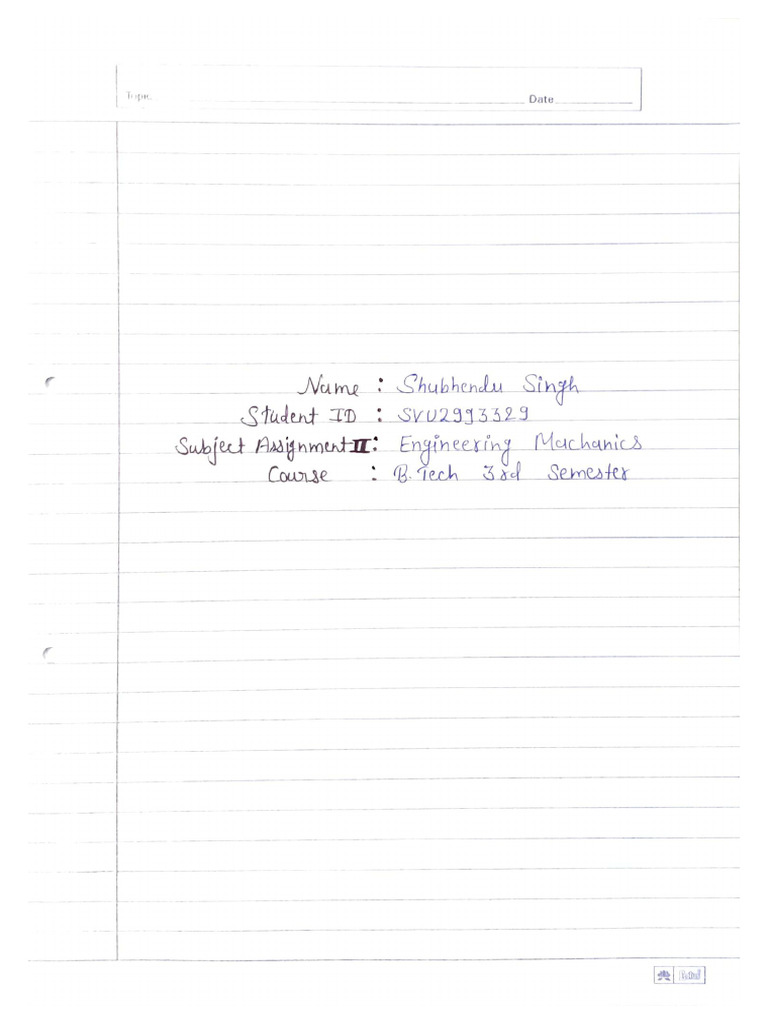 Topic Date
Name : Shubhendu Singh
Student ID : SVU2993329
Subject Assignment II : Engineering Machanics
Course : B.Tech 3rd Semester